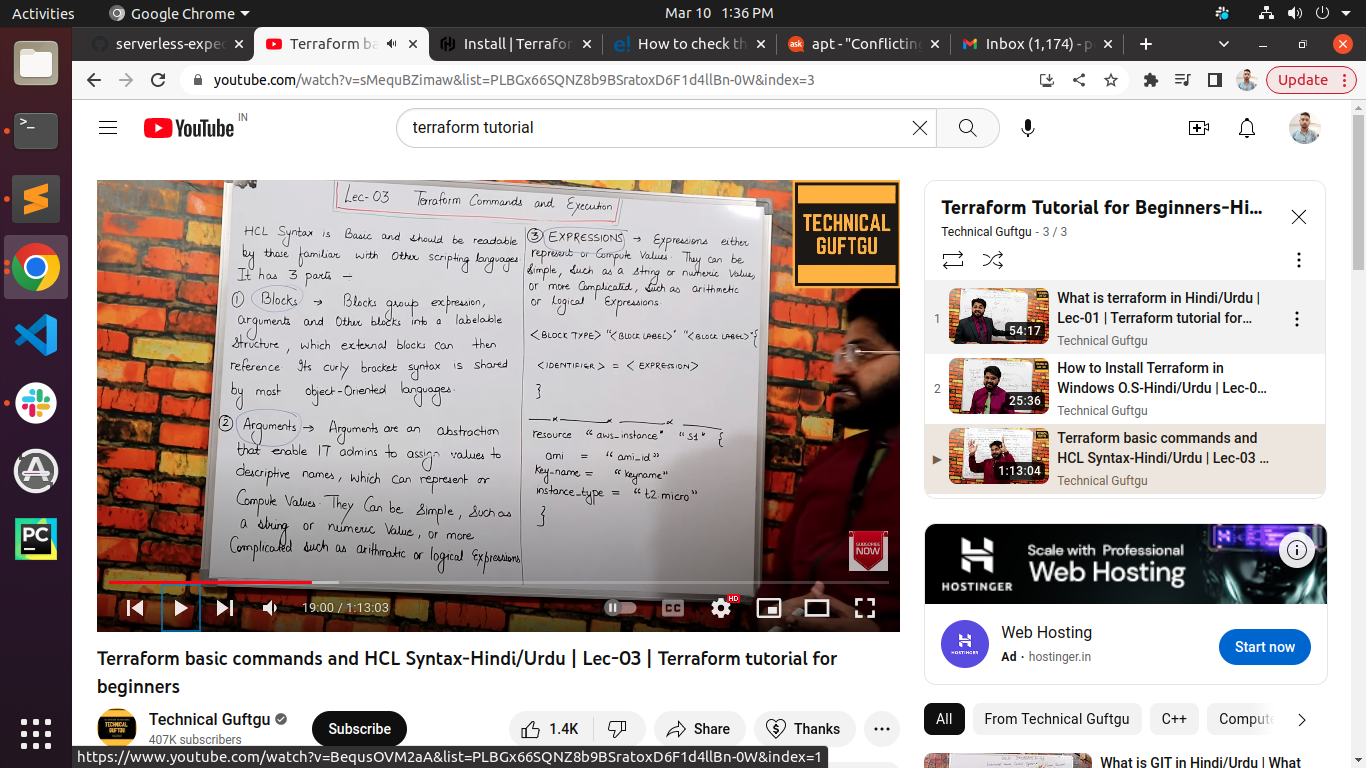 Activities
Google Chrome
Mar 10 1:36 PM
serverless-expec
Terraform ba
Install | Terrafor
How to check th
apt - "Conflicting
Inbox (1,174) - p
youtube.com/watch?v=sMequBZimaw&list=PLBGx66SQNZ8b9BSratoxD6F1d4llBn-0W&index=3
Update
YouTube IN
terraform tutorial
Lec-03 Terraform Commands and Execution
HCL Syntax is Basic and should be readable
by those familiar with Other scripting languages.
It has 3 parts —
① Blocks → Blocks group expression,
arguments and Other blocks into a labelable
Structure, which external blocks can then
reference. Its curly bracket syntax is shared
by most object-Oriented languages.
② Arguments → Arguments are an abstraction
that enable IT admins to assign values to
descriptive names, which can represent or
Compute Values. They Can be Simple, Such as
a string or numeric Value, or more
Complicated such as arithmatic or logical Expressions
③ EXPRESSIONS → Expressions either
represent or Compute Values. They can be
Simple, Such as a string or numeric Value,
or more Complicated, Such as arithmetic
or Logical Expressions.
<BLOCK TYPE> "<BLOCK LABEL>" "<BLOCK LABEL>" {
<IDENTIFIER> = <EXPRESSION>
}
resource "aws_instance" "S1" {
ami = "ami_id"
key_name = "keyname"
instance_type = "t2 micro"
}
TECHNICAL
GUFTGU
SUBSCRIBE
NOW
19:00 / 1:13:03
CC
HD
Terraform basic commands and HCL Syntax-Hindi/Urdu | Lec-03 | Terraform tutorial for
beginners
TECHNICAL
GUFTGU
Technical Guftgu
407K subscribers
Subscribe
1.4K
Share
Thanks
https://www.youtube.com/watch?v=BequsOVM2aA&list=PLBGx66SQNZ8b9BSratoxD6F1d4llBn-0W&index=1
Terraform Tutorial for Beginners-Hi...
Technical Guftgu - 3 / 3
1
54:17
What is terraform in Hindi/Urdu |
Lec-01 | Terraform tutorial for...
Technical Guftgu
2
25:36
How to Install Terraform in
Windows O.S-Hindi/Urdu | Lec-0...
Technical Guftgu
1:13:04
Terraform basic commands and
HCL Syntax-Hindi/Urdu | Lec-03 ...
Technical Guftgu
HOSTINGER
Scale with Professional
Web Hosting
Web Hosting
Ad · hostinger.in
Start now
All
From Technical Guftgu
C++
Compute
What is GIT in Hindi/Urdu | What